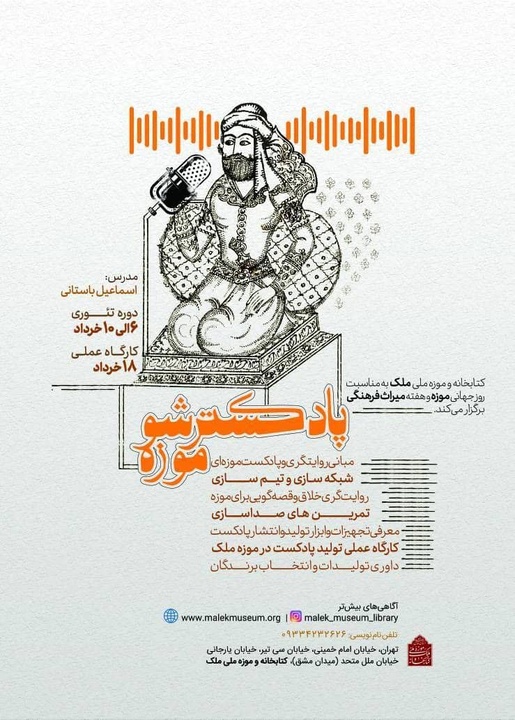 مدرس:
اسماعیل باستانی
دوره تئوری
۶ الی ۱۰ خرداد
کارگاه عملی
۱۸ خرداد
کتابخانه و موزه ملی ملک به مناسبت
روز جهانی موزه و هفته میراث فرهنگی
برگزار می‌کند.
پادکستر شو
موزه
مبانی روایتگری و پادکست موزه‌ای
شبکه سازی و تیم سازی
روایت‌گری خلاق و قصه‌گویی برای موزه
تمرین های صداسازی
معرفی تجهیزات و ابزار تولید و انتشار پادکست
کارگاه عملی تولید پادکست در موزه ملک
داوری تولیدات و انتخاب برندگان
آگاهی‌های بیش‌تر
www.malekmuseum.org | malek_museum_library
تلفن نام‌نویسی: ۰۹۳۳۴۲۳۲۶۲۶
تهران، خیابان امام خمینی، خیابان سی تیر، خیابان یارجانی
خیابان ملل متحد (میدان مشق)، کتابخانه و موزه ملی ملک